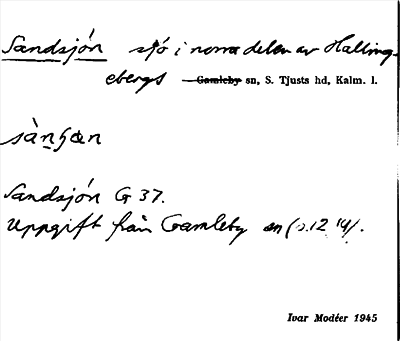 Sandsjön sjö i norra delen av Halling-
ebergs Gamleby sn, S. Tjusts hd, Kalm. l.
Sandsjön G 37.
Uppgift från Gamleby sn
Ivar Modéer 1945